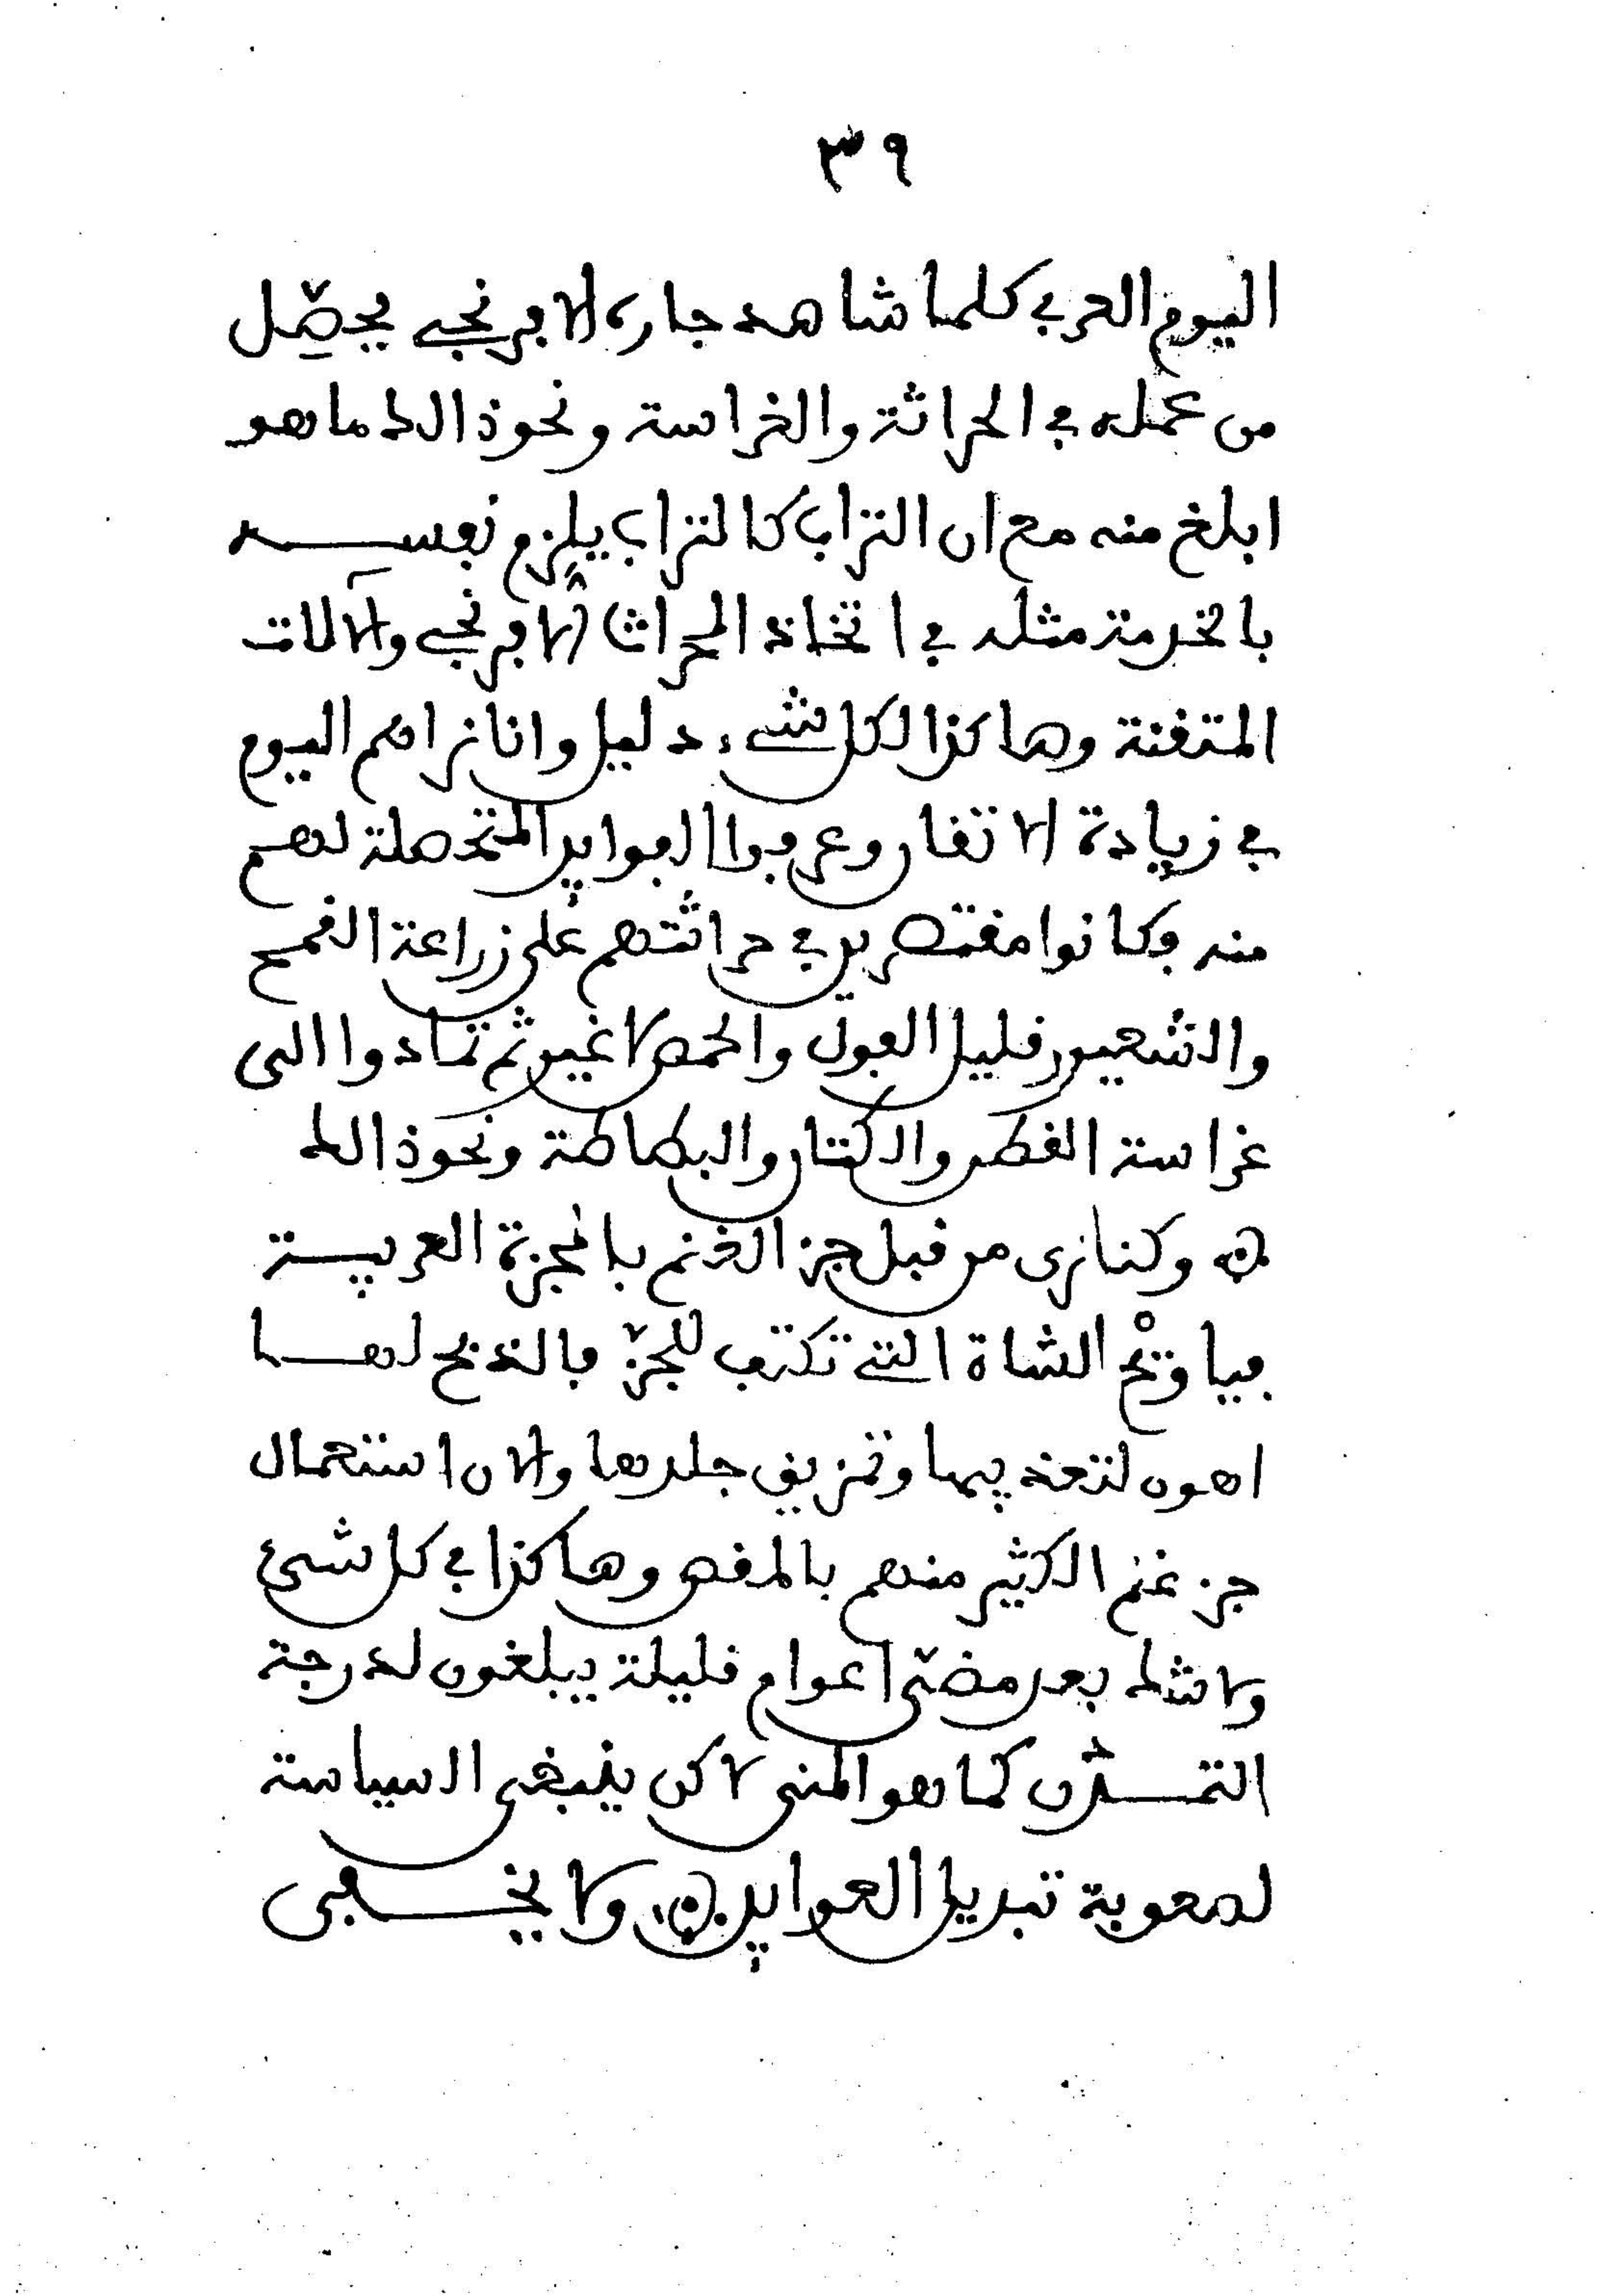 ٣٩
اليوم العربي كلما شاهد جاره الافرنجي يحصّل
من عمله في الحراثة والغراسة ونحو ذالك ما هو
ابلغ منه مع ان التراب كالتراب يلزم نفسه
بالخدمة مثله في اتخاذ المحراث الافرنجي والآلات
المتقنة وهاكذا لكل شيء دليل وانا نراهم اليوم
في زيادة الاتقان وعرفوا الفوايد المتحصلة لهم
منه وكانوا مقتصرين في حراثتهم على زراعة القمح
والشعير وقليل الفول والحمص لا غير ثم تمادوا الى
غراسة القطن والكتان والبطاطة ونحو ذالك
وكنا نرى من قبل جز الغنم بالمجزة العربية
فيا ويْح الشاة التي تكتب للجزّ فالذبح لها
اهون لتعذيبها وتمزيق جلدها والان استعمال
جز غنم الكثير منهم بالمقص وهاكذا في كل شيئ
ولا شك بعد مضّى اعوام قليلة يبلغون لدرجة
التمدّن كما هو المنى لاكن ينبغى السياسة
لصعوبة تبديل العوايد ولا يخفى